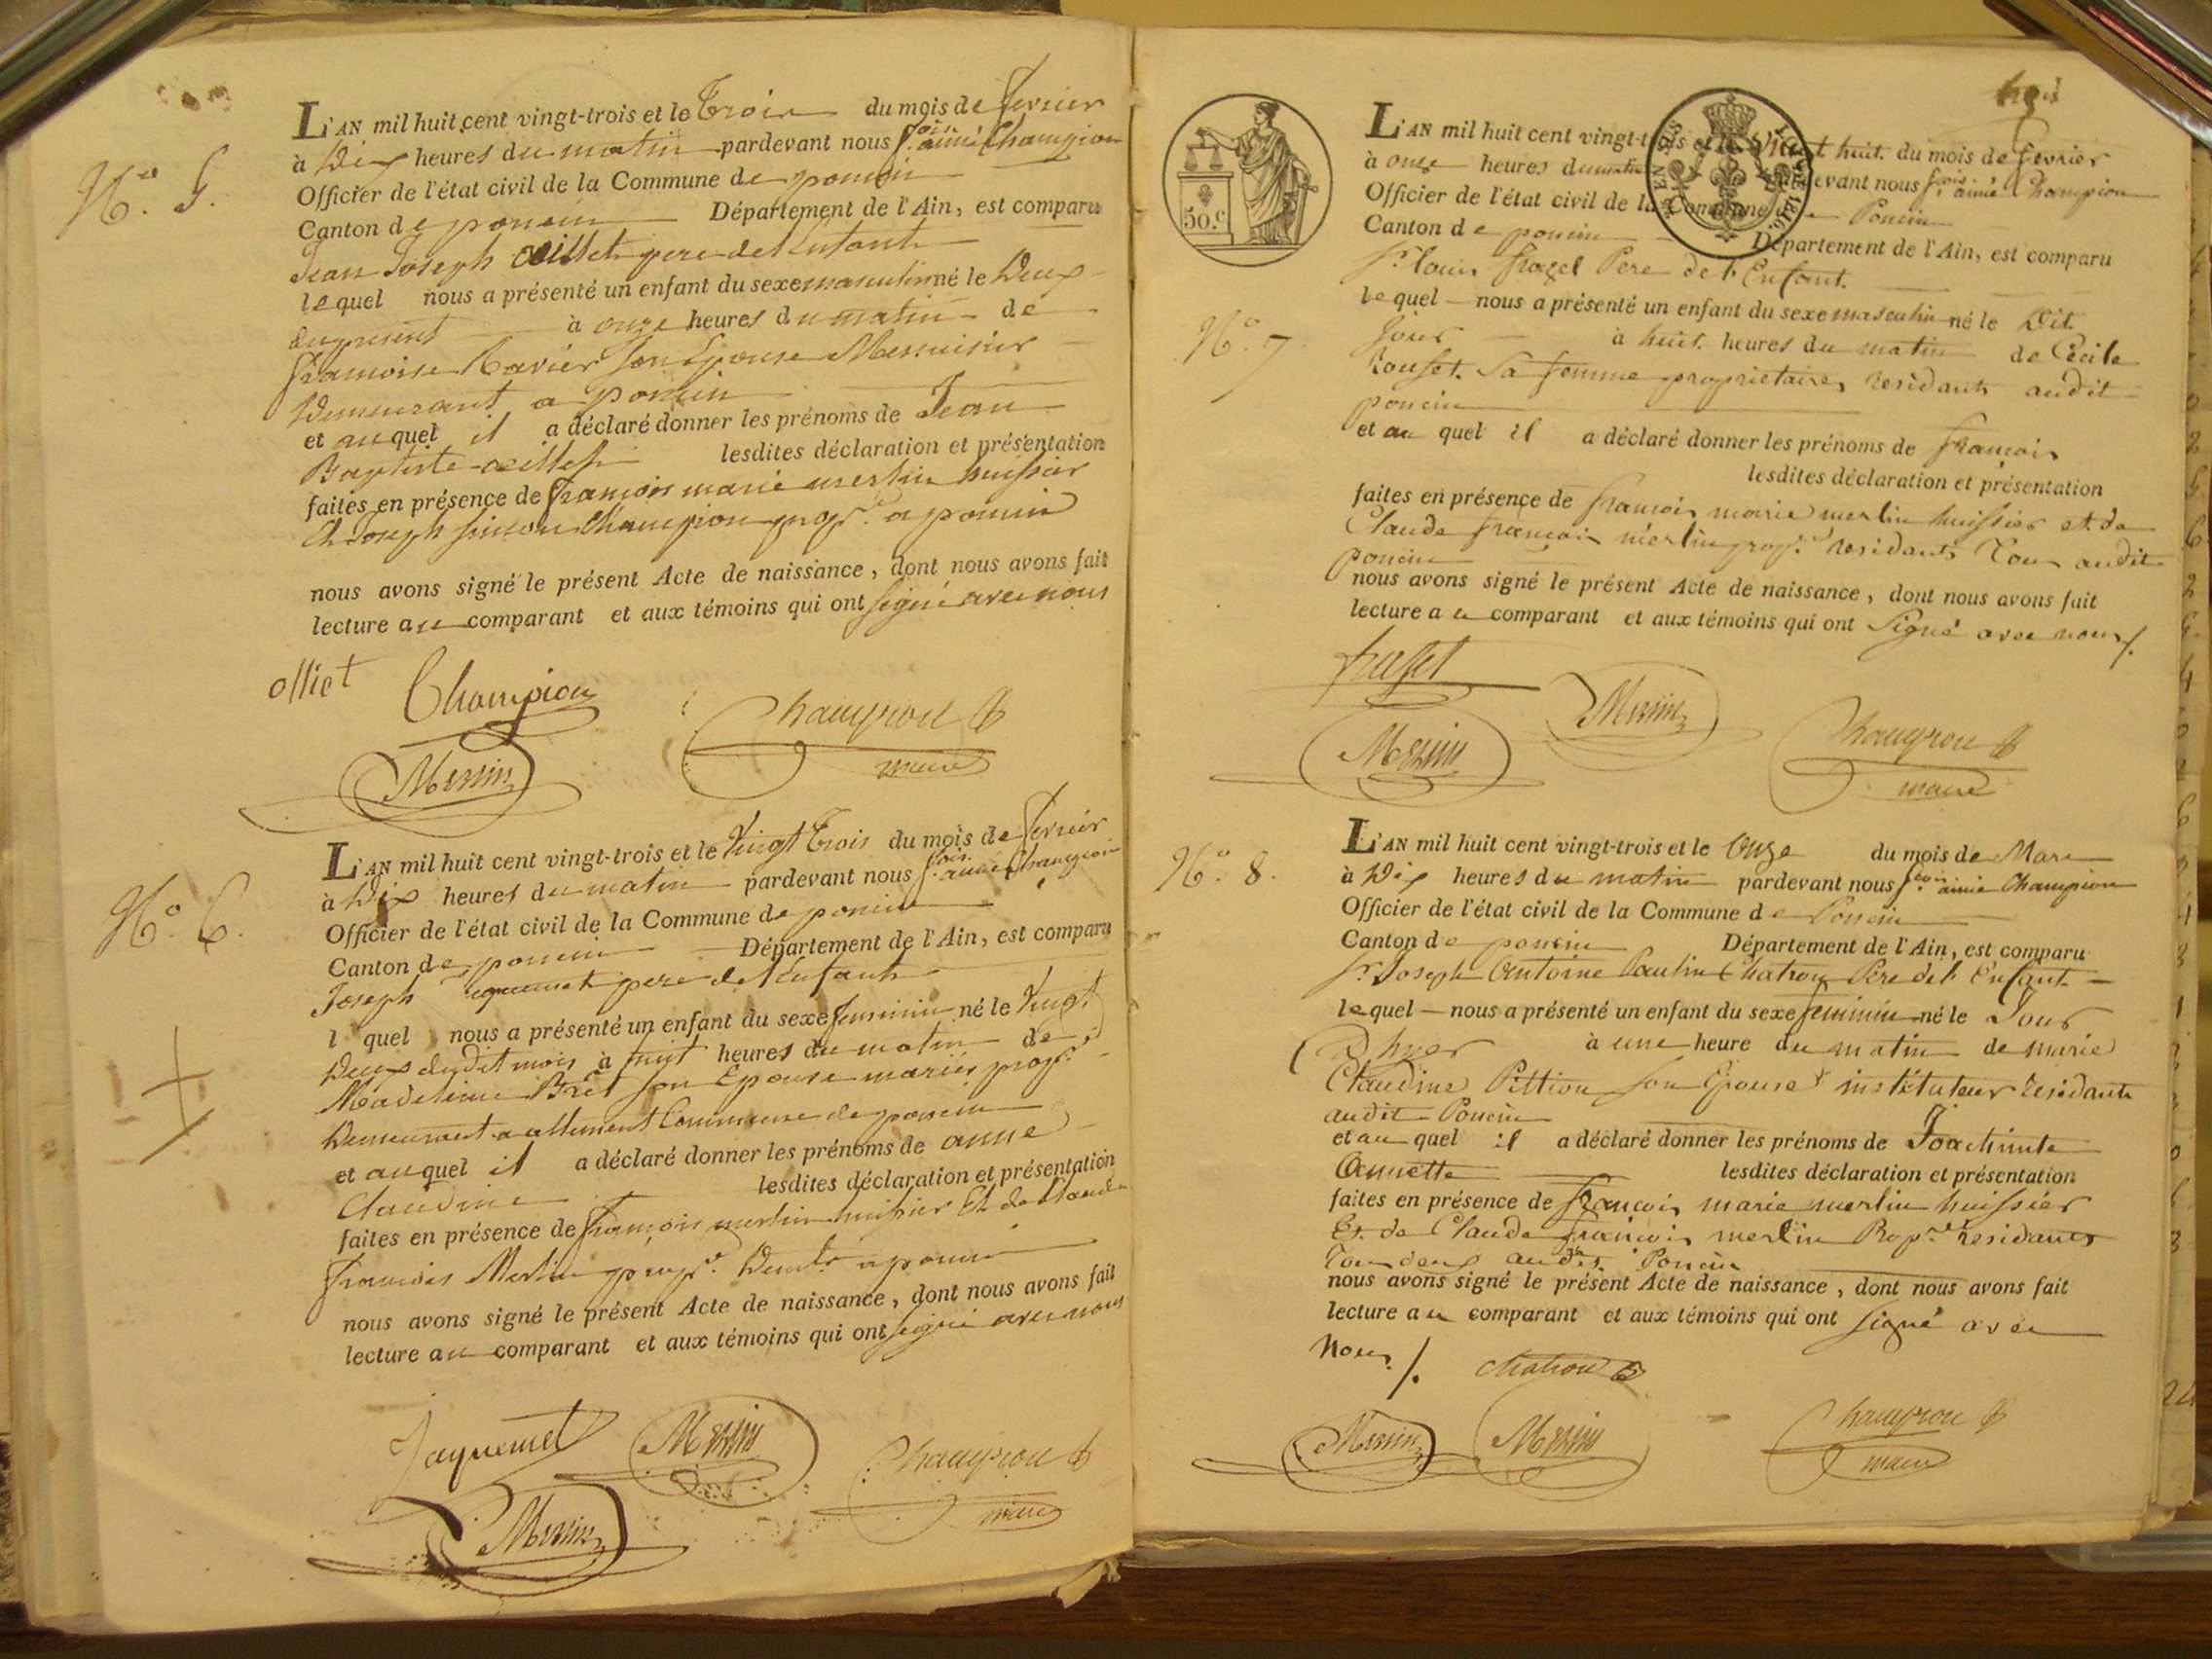 N.º 5.
L'AN mil huit cent vingt-trois et le Trois du mois de fevrier
à Dix heures du matin pardevant nous f.ois aimé Champion
Officier de l'état civil de la Commune de poncin
Canton de poncin Département de l'Ain, est comparu
Jean Joseph œillet pere de l'enfant
lequel nous a présenté un enfant du sexe masculin né le Deux
du present à onze heures du matin de
francoise Ravier son Epouse Menuisier
Demeurant a poncin
et auquel il a déclaré donner les prénoms de Jean
Baptiste œillet lesdites déclaration et présentation
faites en présence de francois marie merlin huissier
et Joseph simon Champion prop.re a poncin
nous avons signé le présent Acte de naissance, dont nous avons fait
lecture au comparant et aux témoins qui ont signé avec nous
olliet Champion
Champion
Merlin
maire
N.º 6.
L'AN mil huit cent vingt-trois et le Vingt Trois du mois de fevrier
à Dix heures du matin pardevant nous f.ois aimé Champion
Officier de l'état civil de la Commune de poncin
Canton de poncin Département de l'Ain, est comparu
Joseph pere de l'enfant
l quel nous a présenté un enfant du sexe feminin né le Vingt
Deux dudit mois à huit heures du matin de
Madeleine Bret son Epouse mariés prop.res
Demeurant a allement Commune de poncin
et auquel il a déclaré donner les prénoms de anne
Claudine lesdites déclaration et présentation
faites en présence de francois merlin huissier Et de Claude
francois Merlin prop.re Demt. a poncin
nous avons signé le présent Acte de naissance, dont nous avons fait
lecture au comparant et aux témoins qui ont signé avec nous
Jaquemet Merlin
Champion
Merlin
maire
trois
50.c
N.º 7
L'AN mil huit cent vingt-trois et le Vingt huit du mois de fevrier
à onze heures du matin pardevant nous f.ois aimé Champion
Officier de l'état civil de la Commune de Poncin
Canton de poncin Département de l'Ain, est comparu
S.r louis Pere de l'Enfant.
lequel nous a présenté un enfant du sexe masculin né le Dit
Jour à huit heures du matin de Cécile
sa femme proprietaires residants audit
poncin
et au quel il a déclaré donner les prénoms de francois
lesdites déclaration et présentation
faites en présence de francois marie merlin huissier et de
Claude francois merlin prop.re residants Tous audit
poncin
nous avons signé le présent Acte de naissance, dont nous avons fait
lecture au comparant et aux témoins qui ont Signé avec nous /.
Merlin
Merlin
Champion
maire
N.º 8.
L'AN mil huit cent vingt-trois et le Onze du mois de Mars
à Dix heures du matin pardevant nous f.ois aimé Champion
Officier de l'état civil de la Commune de Poncin
Canton de poncin Département de l'Ain, est comparu
S.r Joseph Antoine Paulin Chatron Pere de l'Enfant
lequel nous a présenté un enfant du sexe feminin né le Jour
D'hyer à une heure du matin de marie
Claudine Pittion son Epouse instituteur residants
audit Poncin
et au quel il a déclaré donner les prénoms de
Annette lesdites déclaration et présentation
faites en présence de francois marie merlin huissier
Et de Claude francois merlin Prop.re residants
Tous deux audit Poncin
nous avons signé le présent Acte de naissance, dont nous avons fait
lecture au comparant et aux témoins qui ont signé avec
Nous /. chatron
Merlin Merlin
Champion
maire